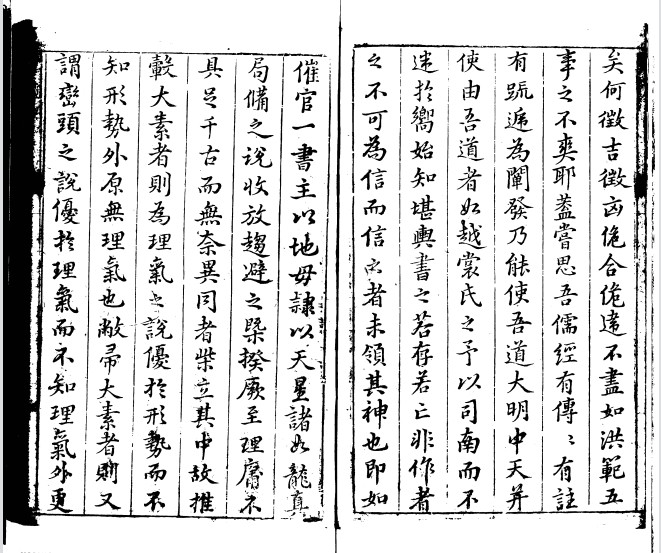 矣何徵吉徵凶僥合僥違不盡如洪範五
事之不爽耶蓋嘗思吾儒經有傳〻有註
有疏遞為闡發乃能使吾道大明中天并
使由吾道者如越裳氏之予以司南而不
迷於嚮始知堪輿書之若存若亡非作者
之不可為信而信之者未領其神也即如
催官一書主以地母隷以天星諸如龍真
局備之说收放趨避之槩揆厥至理脗不
具足千古而無奈異同者柴立其中故推
轂大素者則為理氣之說優於形勢而不
知形勢外原無理氣也敝帚大素者則又
謂巒頭之說優於理氣而不知理氣外更